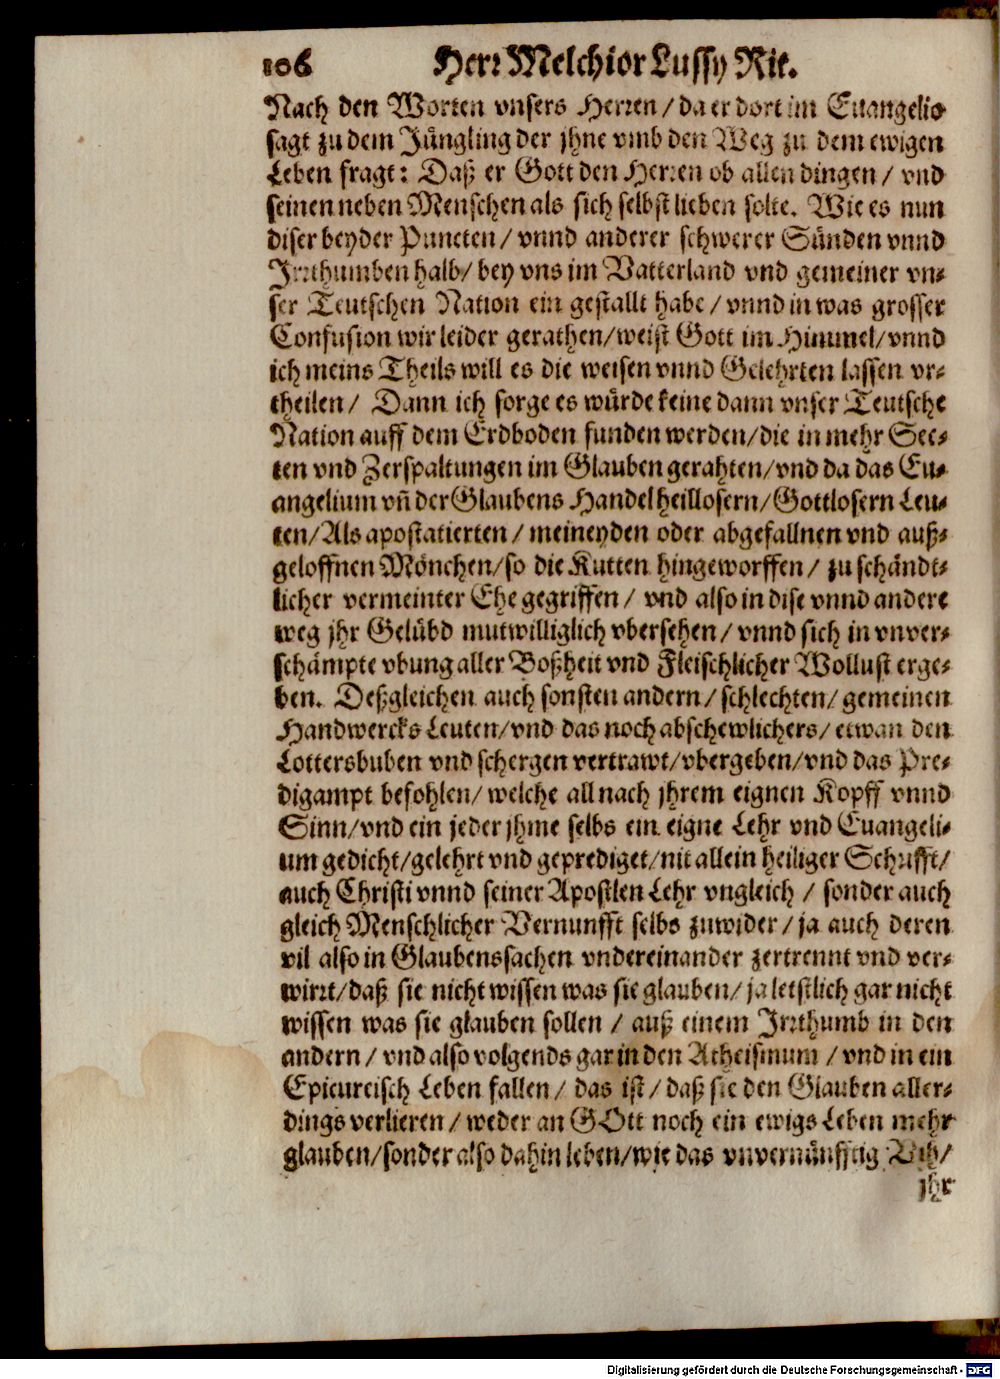 106 Herr Melchior Lussy Rit.
Nach den Worten vnsers Herren / da er dort im Euangelio
sagt zu dem Jüngling der jhne vmb den Weg zu dem ewigen
Leben fragt: Daß er Gott den Herren ob allen dingen / vnd
seinen neben Menschen als sich selbst lieben solte. Wie es nun
diser beyder Puncten / vnnd anderer schwerer Sünden vnnd
Jrrthumben halb / bey vns im Vatterland vnd gemeiner vn-
ser Teutschen Nation ein gestallt habe / vnnd in was grosser
Confusion wir leider gerathen / weist Gott im Himmel / vnnd
ich meins Theils will es die weisen vnnd Gelehrten lassen vr-
theilen / Dann ich sorge es würde keine dann vnser Teutsche
Nation auff dem Erdboden funden werden / die in mehr Sec-
ten vnd Zerspaltungen im Glauben gerahten / vnd da das Eu-
angelium vñ der Glaubens Handel heillosern / Gottlosern Leu-
ten / Als apostatierten / meineyden oder abgefallnen vnd auß-
geloffnen Mönchen / so die Kutten hingeworffen / zu schändt-
licher vermeinter Ehe gegriffen / vnd also in dise vnnd andere
weg jhr Gelübd mutwilliglich vbersehen / vnnd sich in vnver-
schämpte vbung aller Boßheit vnd Fleischlicher Wollust erge-
ben. Deßgleichen auch sonsten andern / schlechten / gemeinen
Handwercks Leuten / vnd das noch abschewlichers / etwan den
Lottersbuben vnd schergen vertrawt / vbergeben / vnd das Pre-
digampt befohlen / welche all nach jhrem eignen Kopff vnnd
Sinn / vnd ein jeder jhme selbs ein eigne Lehr vnd Euangeli-
um gedicht / gelehrt vnd geprediget / nit allein heiliger Schrifft /
auch Christi vnnd seiner Apostlen Lehr vngleich / sonder auch
gleich Menschlicher Vernunfft selbs zuwider / ja auch deren
vil also in Glaubenssachen vndereinander zertrennt vnd ver-
wirrt / daß sie nicht wissen was sie glauben / ja letstlich gar nicht
wissen was sie glauben sollen / auß einem Jrrthumb in den
andern / vnd also volgends gar in den Atheismum / vnd in ein
Epicureisch Leben fallen / das ist / daß sie den Glauben aller-
dings verlieren / weder an GOtt noch ein ewigs Leben mehr
glauben / sonder also dahin leben / wie das vnvernünfftig Vih /
jhr
Digitalisierung gefördert durch die Deutsche Forschungsgemeinschaft - DFG